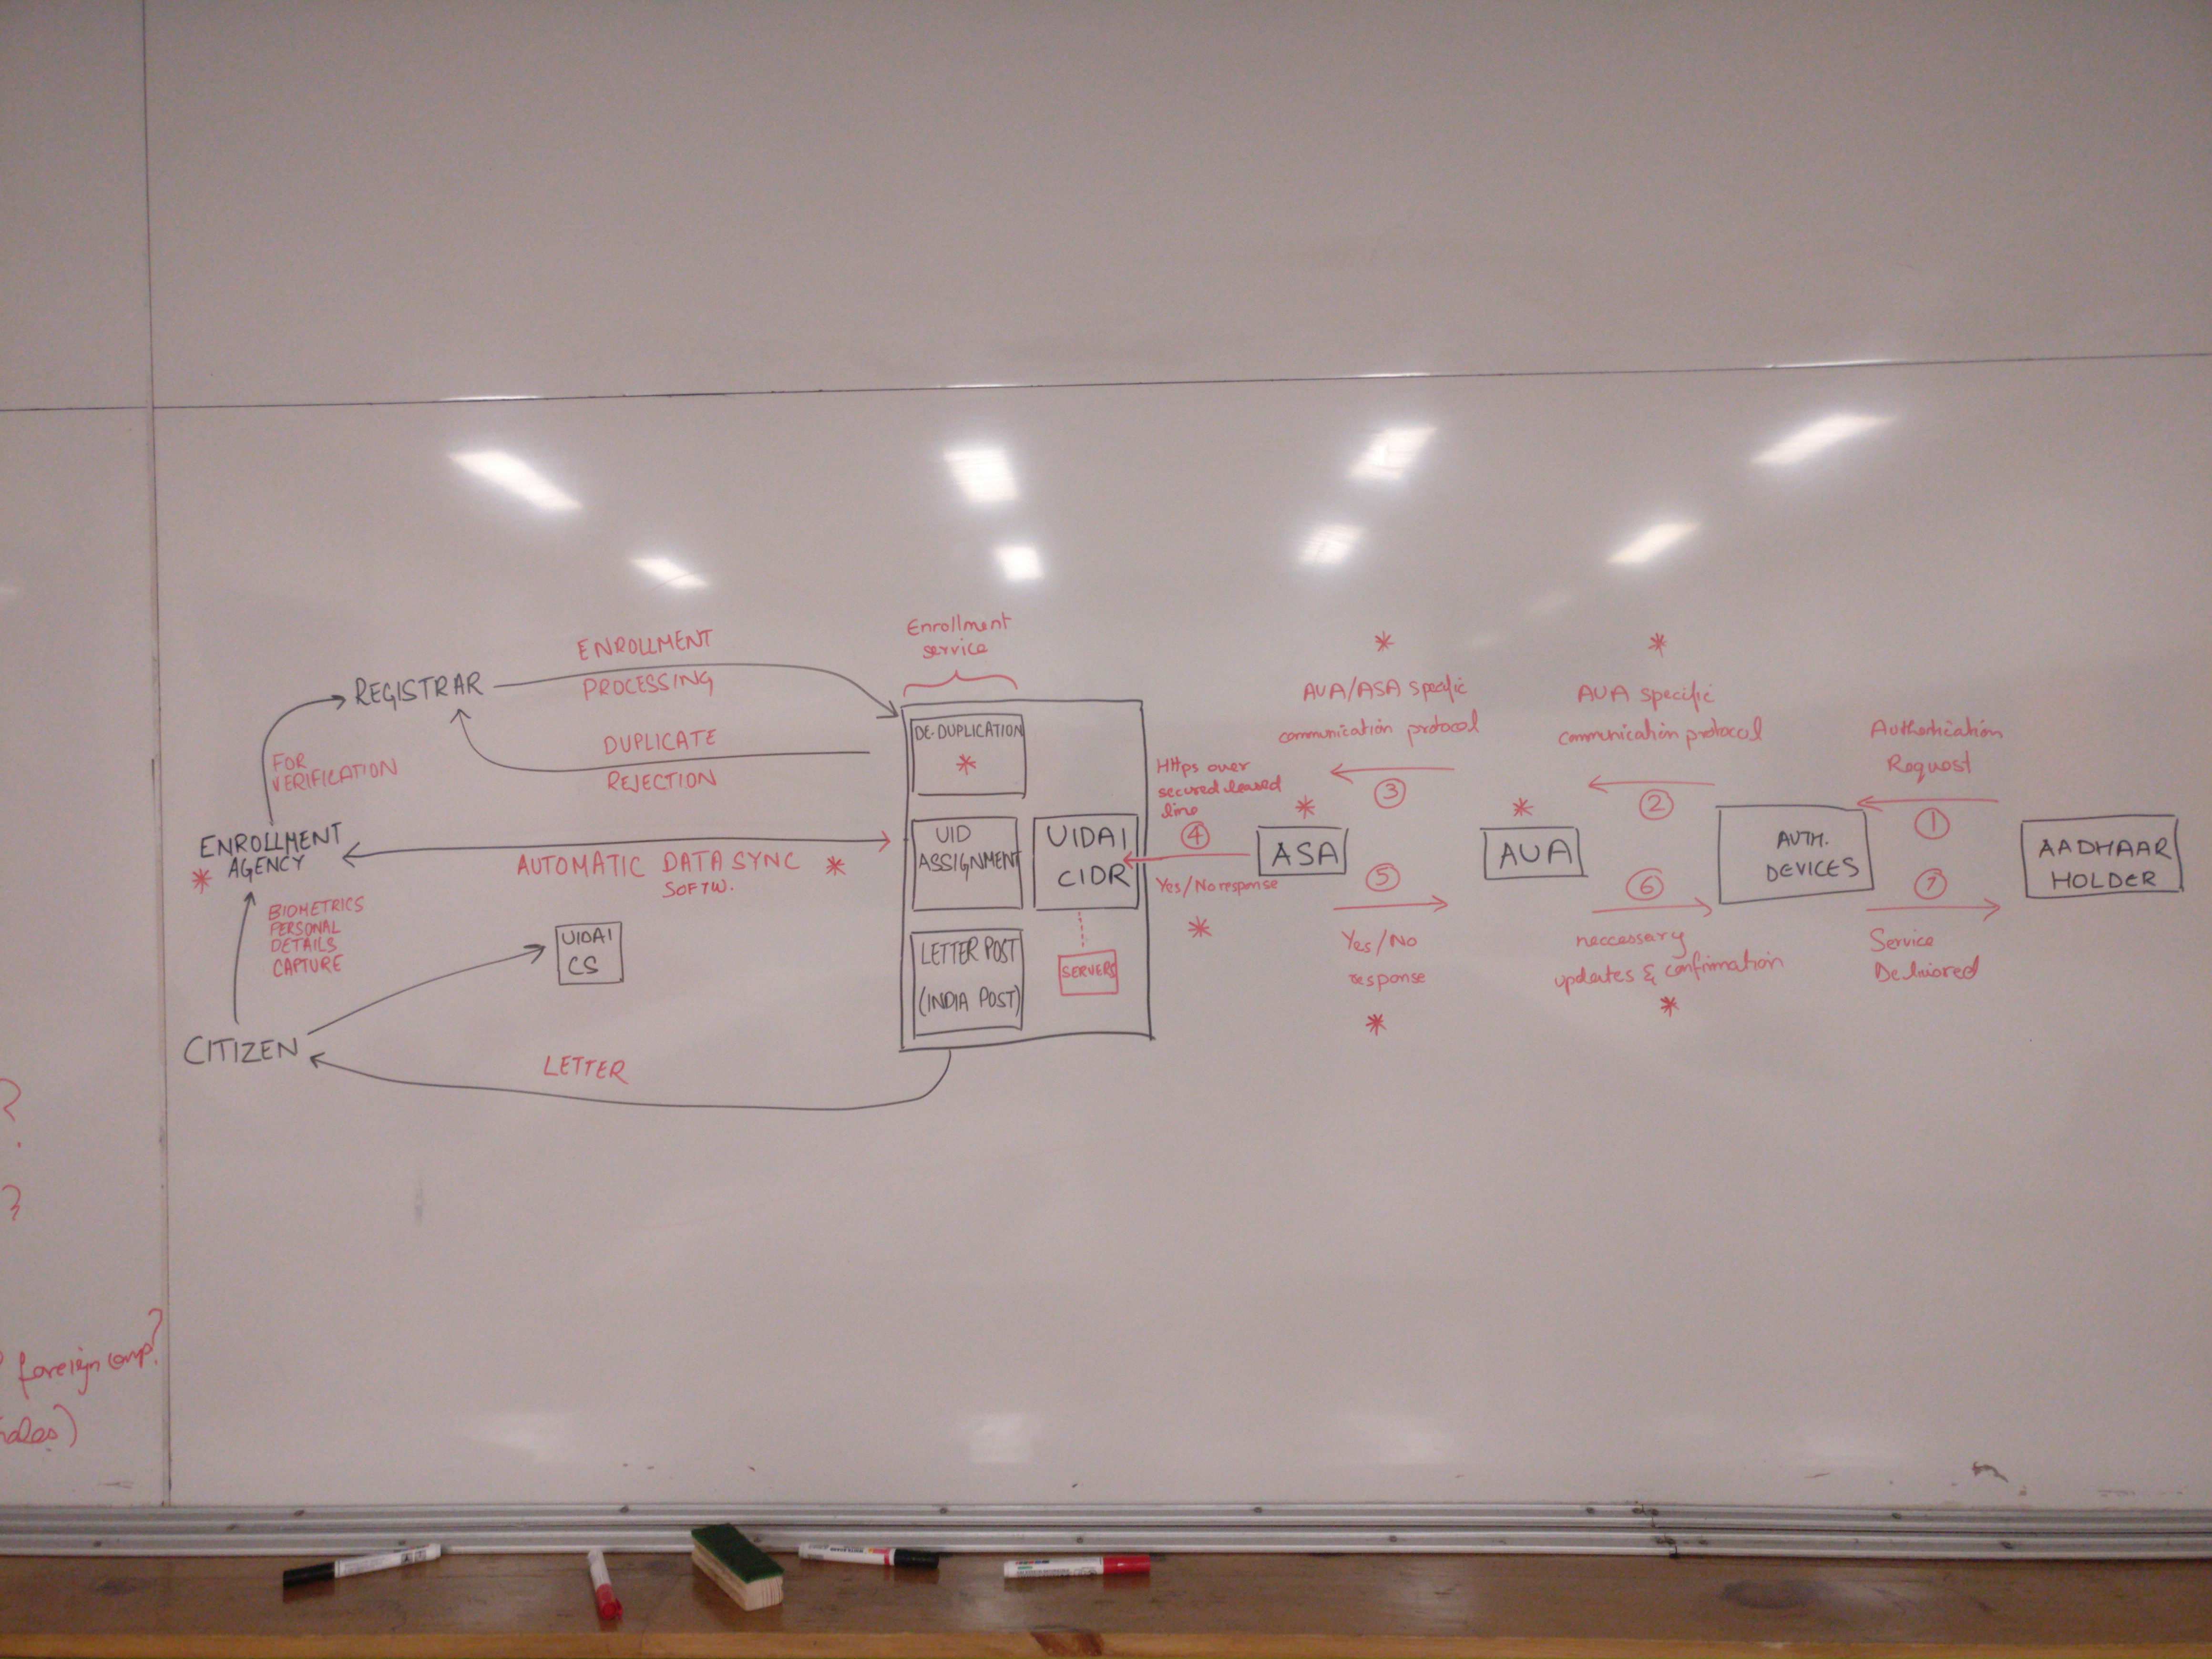 Enrollment
service
ENROLLMENT
PROCESSING
REGISTRAR
DUPLICATE
REJECTION
FOR
VERIFICATION
ENROLLMENT
AGENCY
*
AUTOMATIC DATA SYNC *
SOFTW.
BIOMETRICS
PERSONAL
DETAILS
CAPTURE
UIDAI
CS
CITIZEN
LETTER
DE-DUPLICATION
*
UID
ASSIGNMENT
UIDAI
CIDR
LETTER POST
(INDIA POST)
SERVERS
Https over
secured leased
line
4
Yes/No response
*
*
ASA
*
AUA/ASA specific
communication protocol
3
5
Yes/No
response
*
*
AUA
*
AUA specific
communication protocol
2
6
neccessary
updates & confirmation
*
AUTH.
DEVICES
Authentication
Request
1
7
Service
Delivered
AADHAAR
HOLDER
?
?
foreign comp?